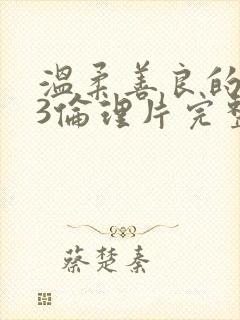 溫柔善良的
3倫理片完整
蔡楚秦